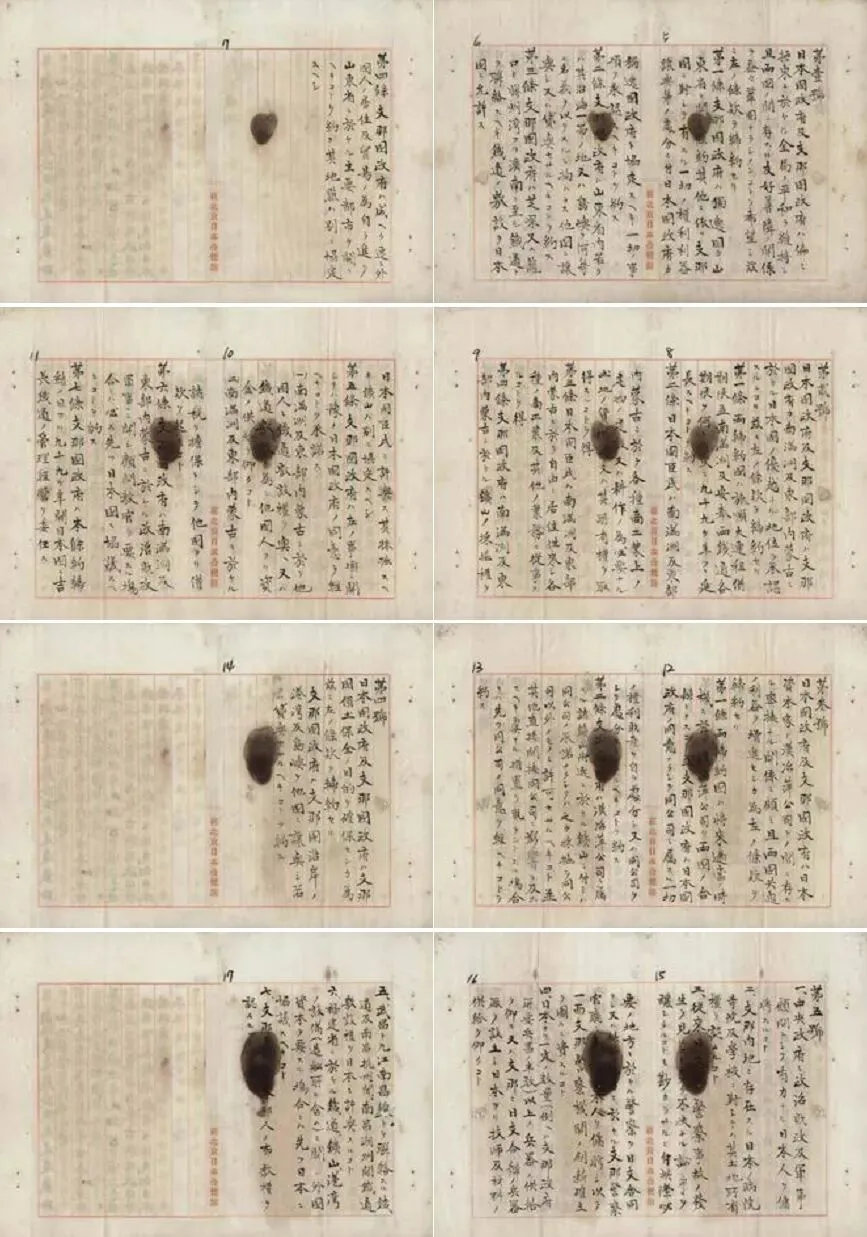 5
第壹號
日本國政府及支那國政府ハ偏ニ
極東ニ於ケル全局ノ平和ヲ維持シ
且兩國ノ間ニ存スル友好善隣ノ關係
ヲ益々鞏固ナラシメンコトヲ希望シ茲
ニ左ノ條款ヲ締約セリ
第一條 支那國政府ハ獨逸國カ山
東省ニ關 條約其他ニ依リ支那
國ニ對シテ有スル一切ノ權利利益
讓與等ノ處分ニ付日本國政府カ
在北京日本公使館
6
獨逸國政府ト協定スヘキ一切ノ事
項ヲ承認スヘキコトヲ約ス
第二條 支 政府ハ山東省內若ク
ハ其沿海一帶ノ地又ハ島嶼ヲ何等
ノ名義ヲ以テスルニ拘ハラス他國ニ讓
與シ又ハ貸與セサルヘキコトヲ約ス
第三條 支那國政府ハ芝罘又ハ龍
口ト膠州灣ヨリ濟南ニ至ル鐵道ト
ヲ聯絡スヘキ鐵道ノ敷設ヲ日本
國ニ允許ス
7
第四條 支那國政府ハ成ヘク速ニ外
國人ノ居住及貿易ノ為自ラ進テ
山東省ニ於ケル主要都市ヲ開クヘ
キコトヲ約ス其地點ハ別ニ協定
スヘシ
在北京日本公使館
8
第貳號
日本國政府及支那國政府ハ支那
國政府カ南滿洲及東部內蒙古ニ
於ケル日本國ノ優越ナル地位ヲ承認
スルニヨリ茲ニ左ノ條款ヲ締約セリ
第一條 兩締約國ハ旅順大連租借
期限並南滿洲及安奉兩鐵道各
期限ヲ何 九十九ケ年ツヽ延
長スヘキコト
第二條 日本國臣民ハ南滿洲及東部
在北京日本公使館
9
內蒙古ニ於テ各種商工業上ノ
建物ノ 又ハ耕作ノ為必要ナル
土地ノ賃 又ハ其所有權ヲ取
得スルコトヲ得
第三條 日本國臣民ハ南滿洲及東部
內蒙古ニ於テ自由ニ居住往來シ各
種ノ商工業及其他ノ業務ニ從事ス
ルコトヲ得
第四條 支那國政府ハ南滿洲及東
部內蒙古ニ於ケル鑛山ノ採掘權ヲ
10
日本國臣民ニ許與ス其採掘スヘ
キ鑛山ハ別ニ協定スヘシ
第五條 支那國政府ハ左ノ事項ニ關
シテハ豫メ日本國政府ノ同意ヲ經
ヘキコトヲ承諾ス
一、南滿洲及東部內蒙古ニ於テ他
國人ニ鐵道敷設權ヲ與ヘ又ハ
鐵道敷設 為ニ他國人ヨリ資
金ノ供 仰クコト
二、南滿洲及東部內蒙古ニ於ケル
在北京日本公使館
11
諸稅ヲ擔保トシテ他國ヨリ借
款ヲ起 コト
第六條 支那國政府ハ南滿洲及
東部內蒙古ニ於ケル政治財政
軍事ニ關シ顧問教官ヲ要スル場
合ニハ必ス先ツ日本國ニ協議スヘ
キコトヲ約ス
第七條 支那國政府ハ本條約締
結ノ日ヨリ九十九ケ年間日本國ニ吉
長鐵道ノ管理經營ヲ委任ス
12
第參號
日本國政府及支那國政府ハ日本
國資本家ト漢冶萍公司トノ間ニ存ス
ル密接ナル關係ニ顧ミ且兩國共通
ノ利益ヲ增進センカ為左ノ條款ヲ
締約セリ
第一條 兩締約國ハ將來適當ノ時
機ニ於 萍公司ヲ兩國ノ合
辦トス 支那國政府ハ日本國
政府ノ同意ナクシテ同公司ニ屬スル一切
在北京日本公使館
13
ノ權利財產ヲ自ラ處分シ又ハ同公司ヲ
シテ處分セシメサルヘキコトヲ約ス
第二條 支 府ハ漢冶萍公司ニ屬
スル諸鑛山附近ニ於ケル鑛山ニ付テハ
同公司ノ承諾ナクシテハ之カ採掘ヲ同公
司以外ノモノニ許可セサルヘキコト並
其他直接間接同公司ニ影響ヲ及ホス
ヘキ虞アル措置ヲ執ラントスル場合ニ
ハ先ツ同公司ノ同意ヲ經ヘキコトヲ
約ス
14
第四號
日本國政府及支那國政府ハ支那
國領土保全ノ目的ヲ確保センカ為
茲ニ左ノ條款ヲ締約セリ
支那國政府ハ支那國沿岸ノ
港灣及島嶼ヲ他國ニ讓與シ若
貸與セサルヘキコトヲ約ス
在北京日本公使館
15
第五號
一、中央政府ニ政治財政及軍事
顧問トシテ有力ナル日本人ヲ傭
聘スルコト
二、支那內地ニ存在スル日本ノ病院
寺院及學校ニ對シテハ其土地所有
權ヲ認ムルコト
三、從來 警察事故ノ發
生ヲ見 不快ナル論爭ヲ
釀シタルコトモ尠カラサルニヨリ此際必
在北京日本公使館
16
要ノ地方ニ於ケル警察ヲ日支合同
トシ又ハ 於ケル支那警察
官廳ニ 本人ヲ傭聘シ以テ
一面支那警察機關ノ刷新確立
ヲ圖ルニ資スルコト
四、日本ヨリ一定ノ數量 支那政府
所要兵器ノ半數 以上ノ兵器ノ供給
ヲ仰キ又ハ支那ニ日支合辦ノ兵器
廠ヲ設立シ日本ヨリ技師及材料ノ
供給ヲ仰クコト
17
五、武昌ト九江南昌線トヲ聯絡スル鐵
道及南昌杭州間南昌潮州間鐵道
敷設權ヲ日本ニ許與スルコト
六、福建省ニ於ケル鐵道鑛山港灣
ノ設備(造船所ヲ含ム)ニ關シ外國
資本ヲ要スル場合ニハ先ツ日本ニ
協議スヘキコト
七、支那 本人ノ布教權ヲ
認ムルコト
在北京日本公使館